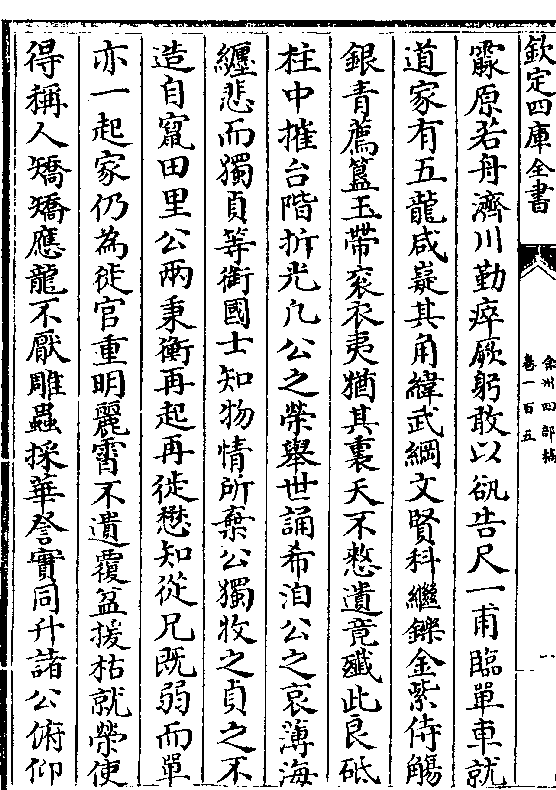 欽定四庫全書
弇州四部稿
卷一百五
霖原若舟濟川勤瘁厥躬敢以祝告尺一甫臨單車就
道家有五龍咸嶷其角緯武綱文賢科繼鑠金紫侍觴
銀青薦簋玉帶衮衣夷猶其裏天不憗遺竟殲此良砥
柱中摧台階折光凡公之榮舉世誦希洎公之哀薄海
纏悲而獨貞等銜國士知物情所棄公獨牧之貞之不
造自竄田里公兩秉衡再起再徙懋知從兄既弱而單
亦一起家仍為徙官重明麗霄不遺覆盆援枯就榮使
得稱人矯矯應龍不厭雕蟲採華登實同升諸公俯仰